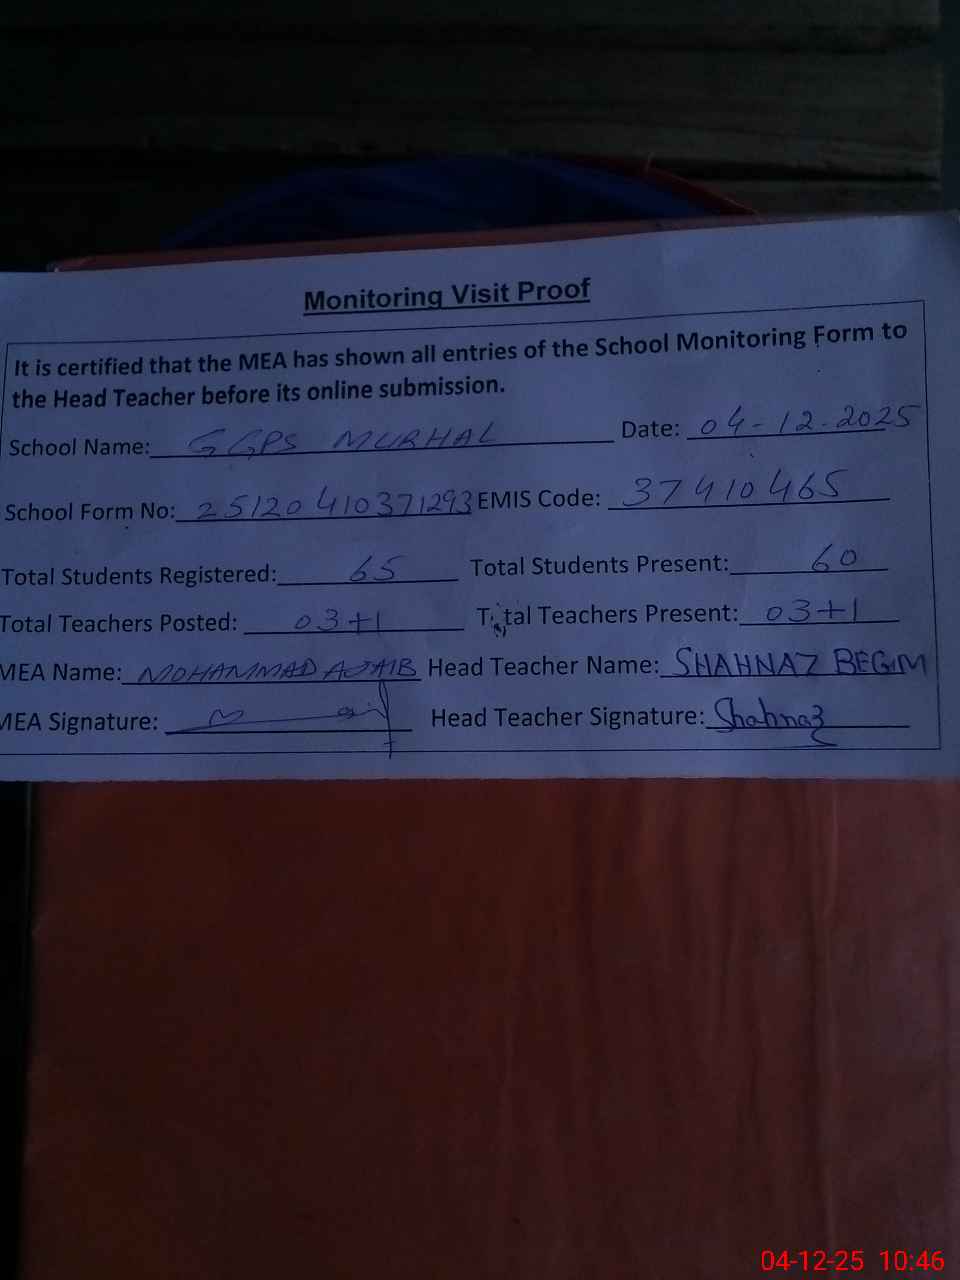 Monitoring Visit Proof
It is certified that the MEA has shown all entries of the School Monitoring Form to
the Head Teacher before its online submission.
School Name: GGPS MURHAL Date: 04-12-2025
School Form No: 25120410371293 EMIS Code: 37410465
Total Students Registered: 65 Total Students Present: 60
Total Teachers Posted: 03+1 Total Teachers Present: 03+1
MEA Name: MOHAMMAD AJAIB Head Teacher Name: SHAHNAZ BEGUM
MEA Signature: Head Teacher Signature: Shahnaz
04-12-25 10:46